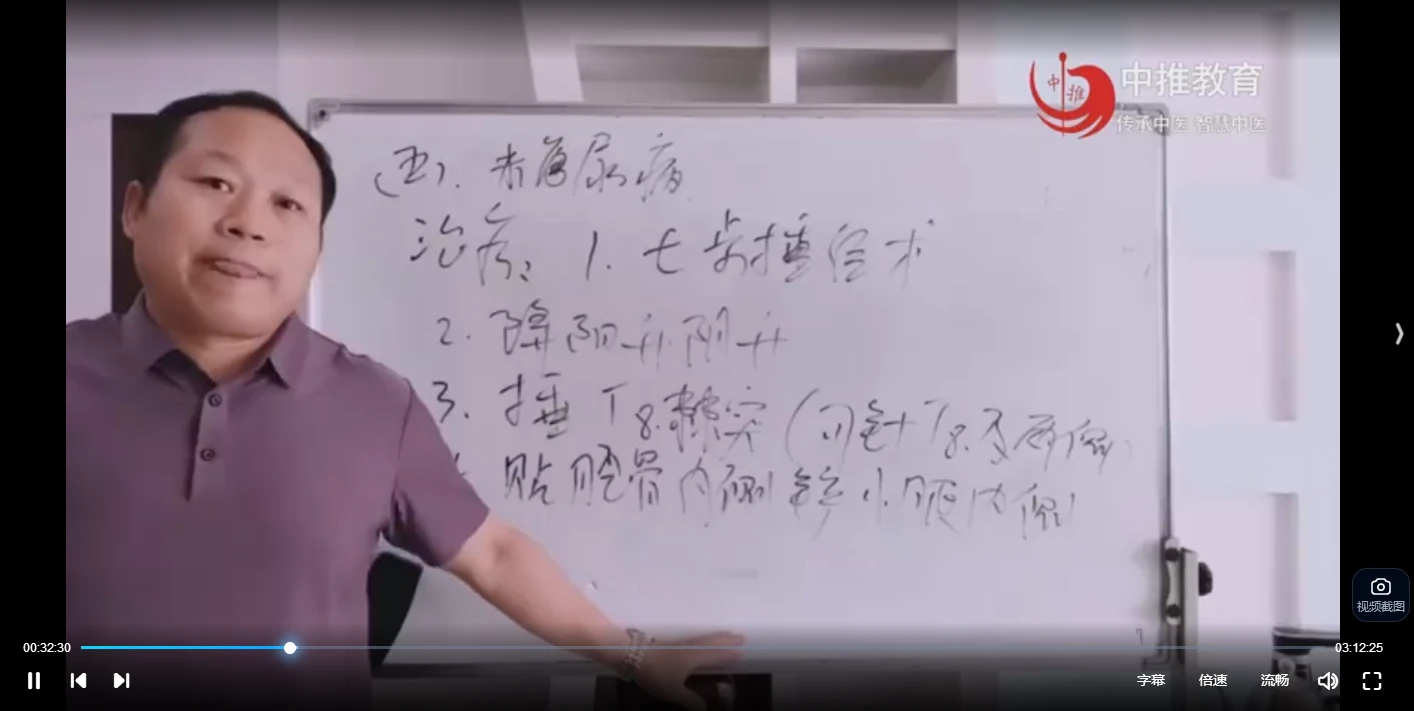 中推教育
传承中医 智慧中医
(五). 糖尿病
治疗: 1. 七步捶 术
2. 降阳 阴
3. 捶 T8.棘突 (T8.及两侧
贴胫骨内侧 小腿内侧
视频截图
00:32:30
03:12:25
字幕 倍速 流畅